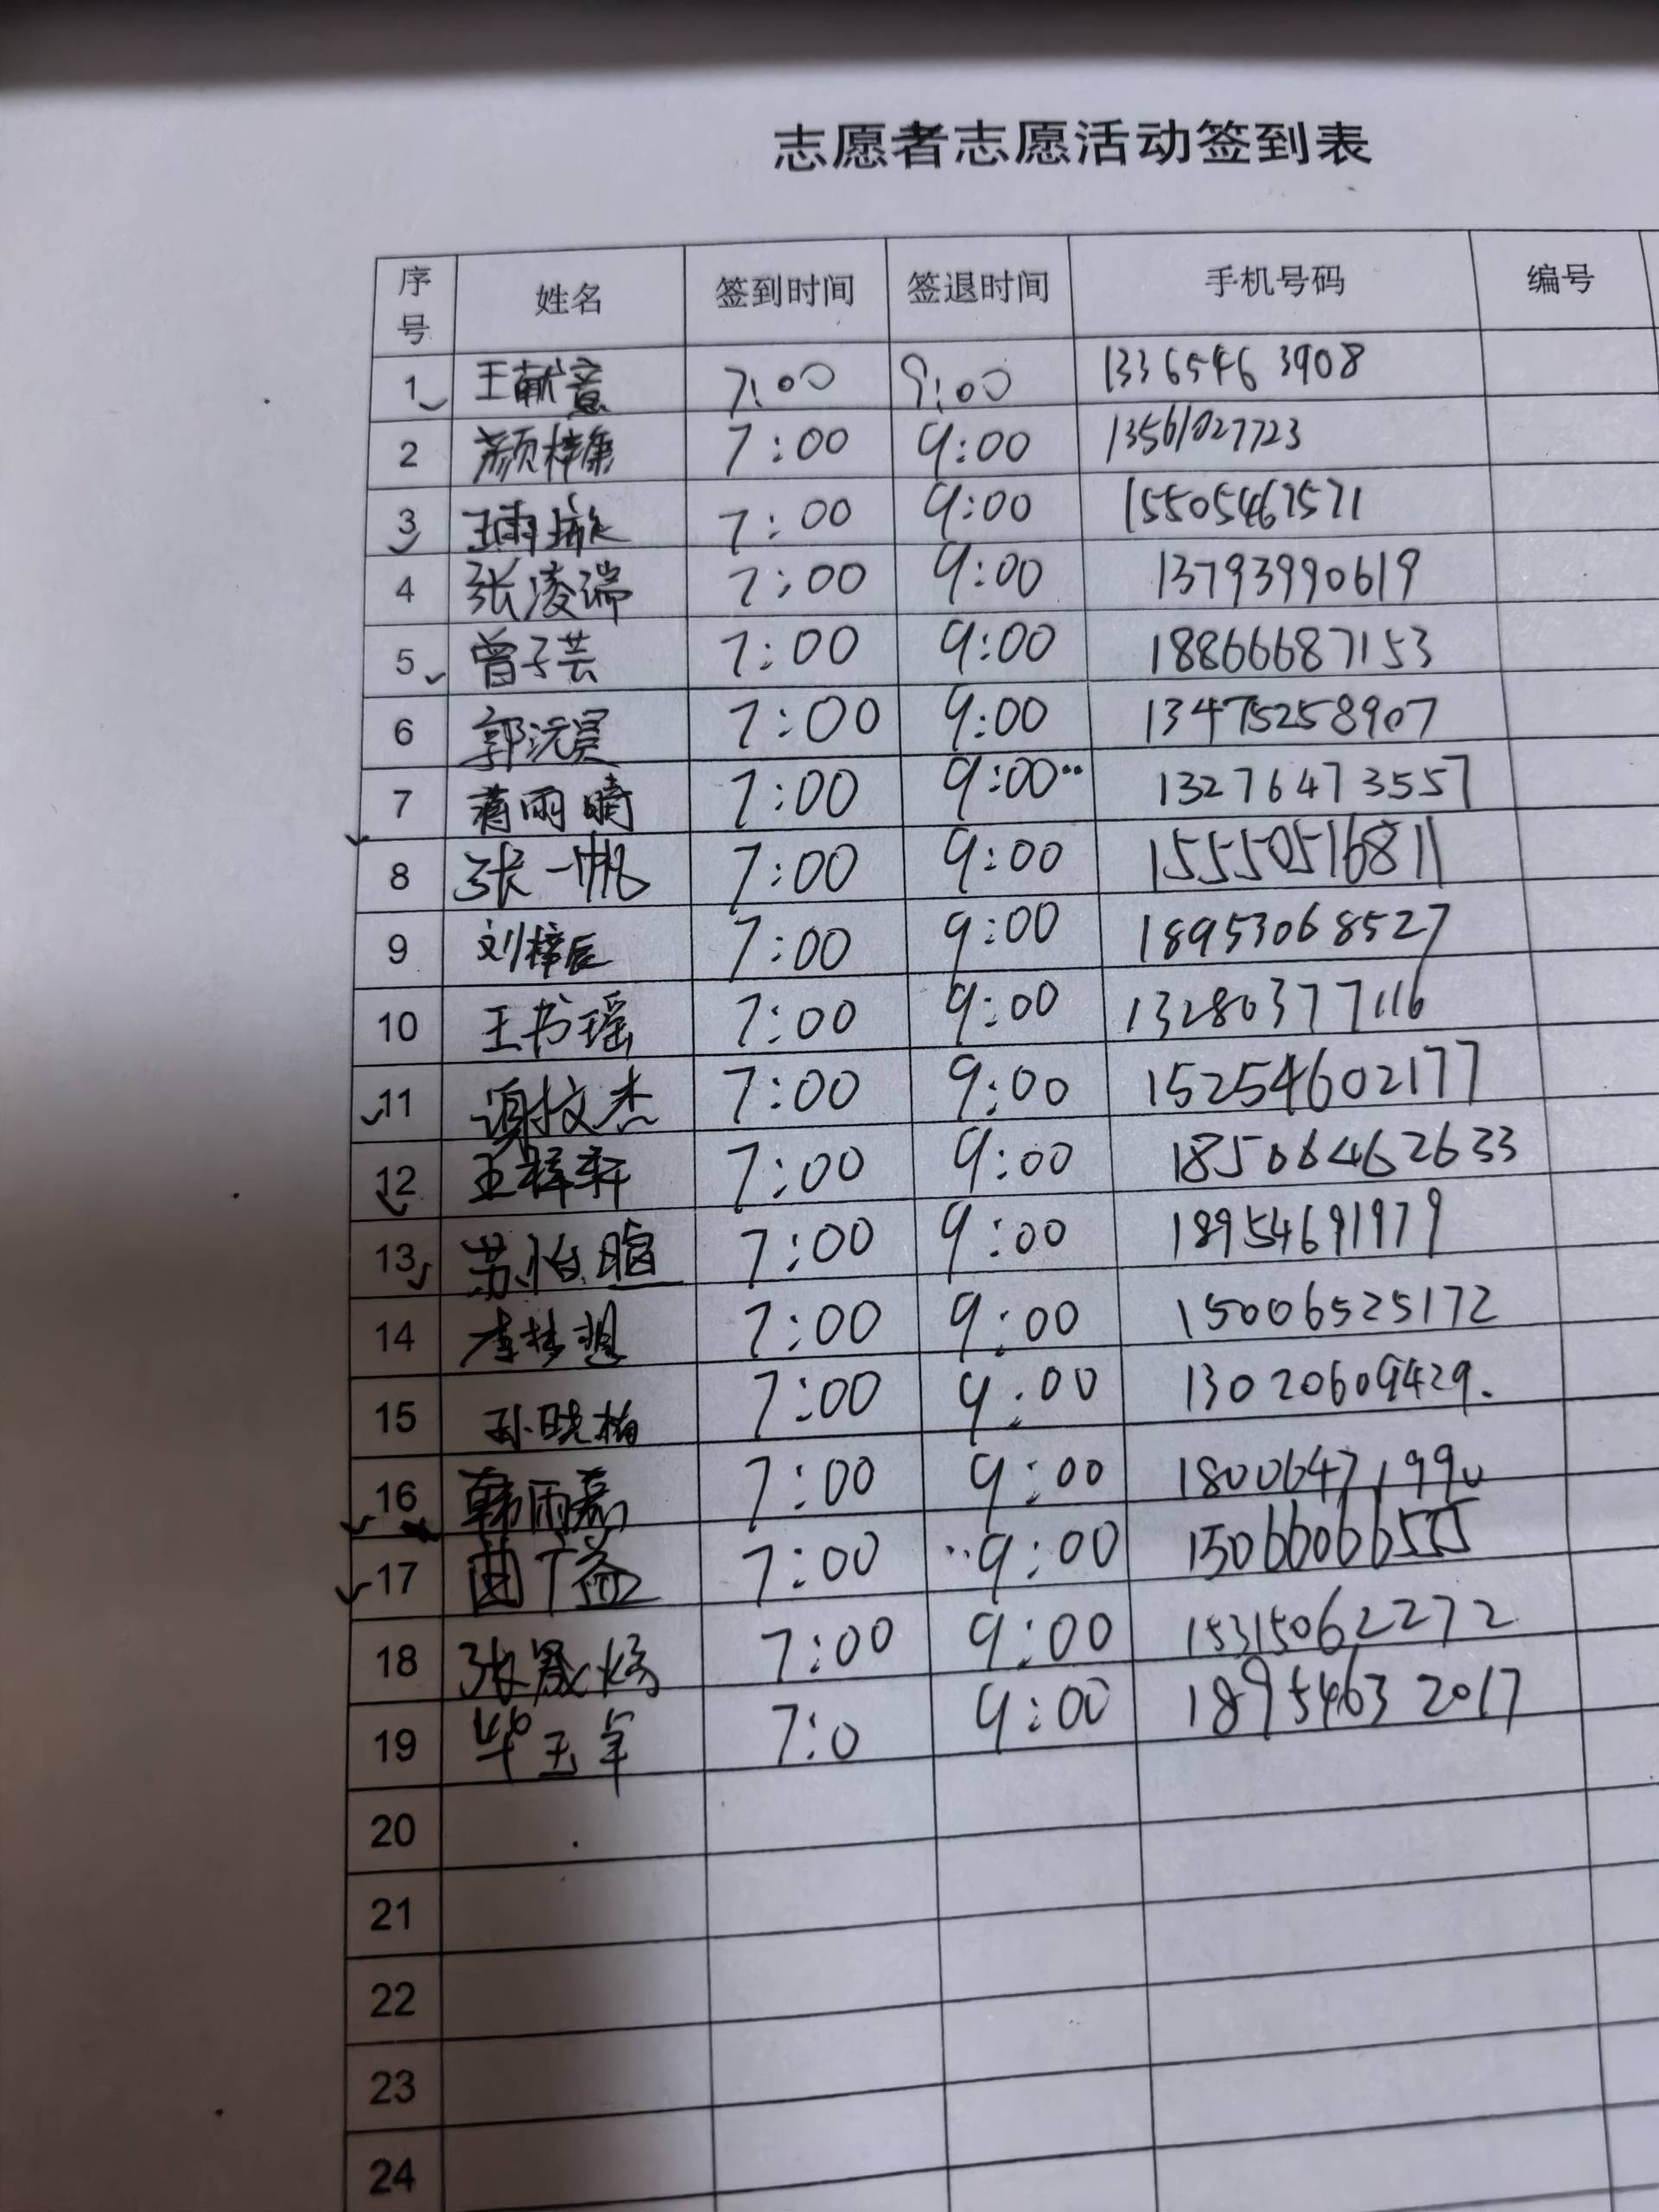 志愿者志愿活动签到表
序号 姓名 签到时间 签退时间 手机号码 编号
1 王献意 7:00 9:00 13365463908
2 颜梓集 7:00 9:00 13561027723
3 王雨璇 7:00 9:00 15505467571
4 张凌瑞 7:00 9:00 13793990619
5 曾子芸 7:00 9:00 18866687153
6 郭沅昊 7:00 9:00 13475258907
7 蒋雨晴 7:00 9:00 13276473557
8 张一帆 7:00 9:00 15550516811
9 刘梓辰 7:00 9:00 18953068527
10 王书瑶 7:00 9:00 13280377116
11 谢文杰 7:00 9:00 15254602177
12 王梓轩 7:00 9:00 18506462633
13 苏怡暄 7:00 9:00 18954691979
14 李梦想 7:00 9:00 15006525172
15 孙晓梅 7:00 9:00 13020609429.
16 韩雨 7:00 9:00 18006471990
17 曲丁益 7:00 9:00 15066066555
18 张晟炀 7:00 9:00 15315062272
19 毕玉 7:0 9:00 18954632017
20
21
22
23
24